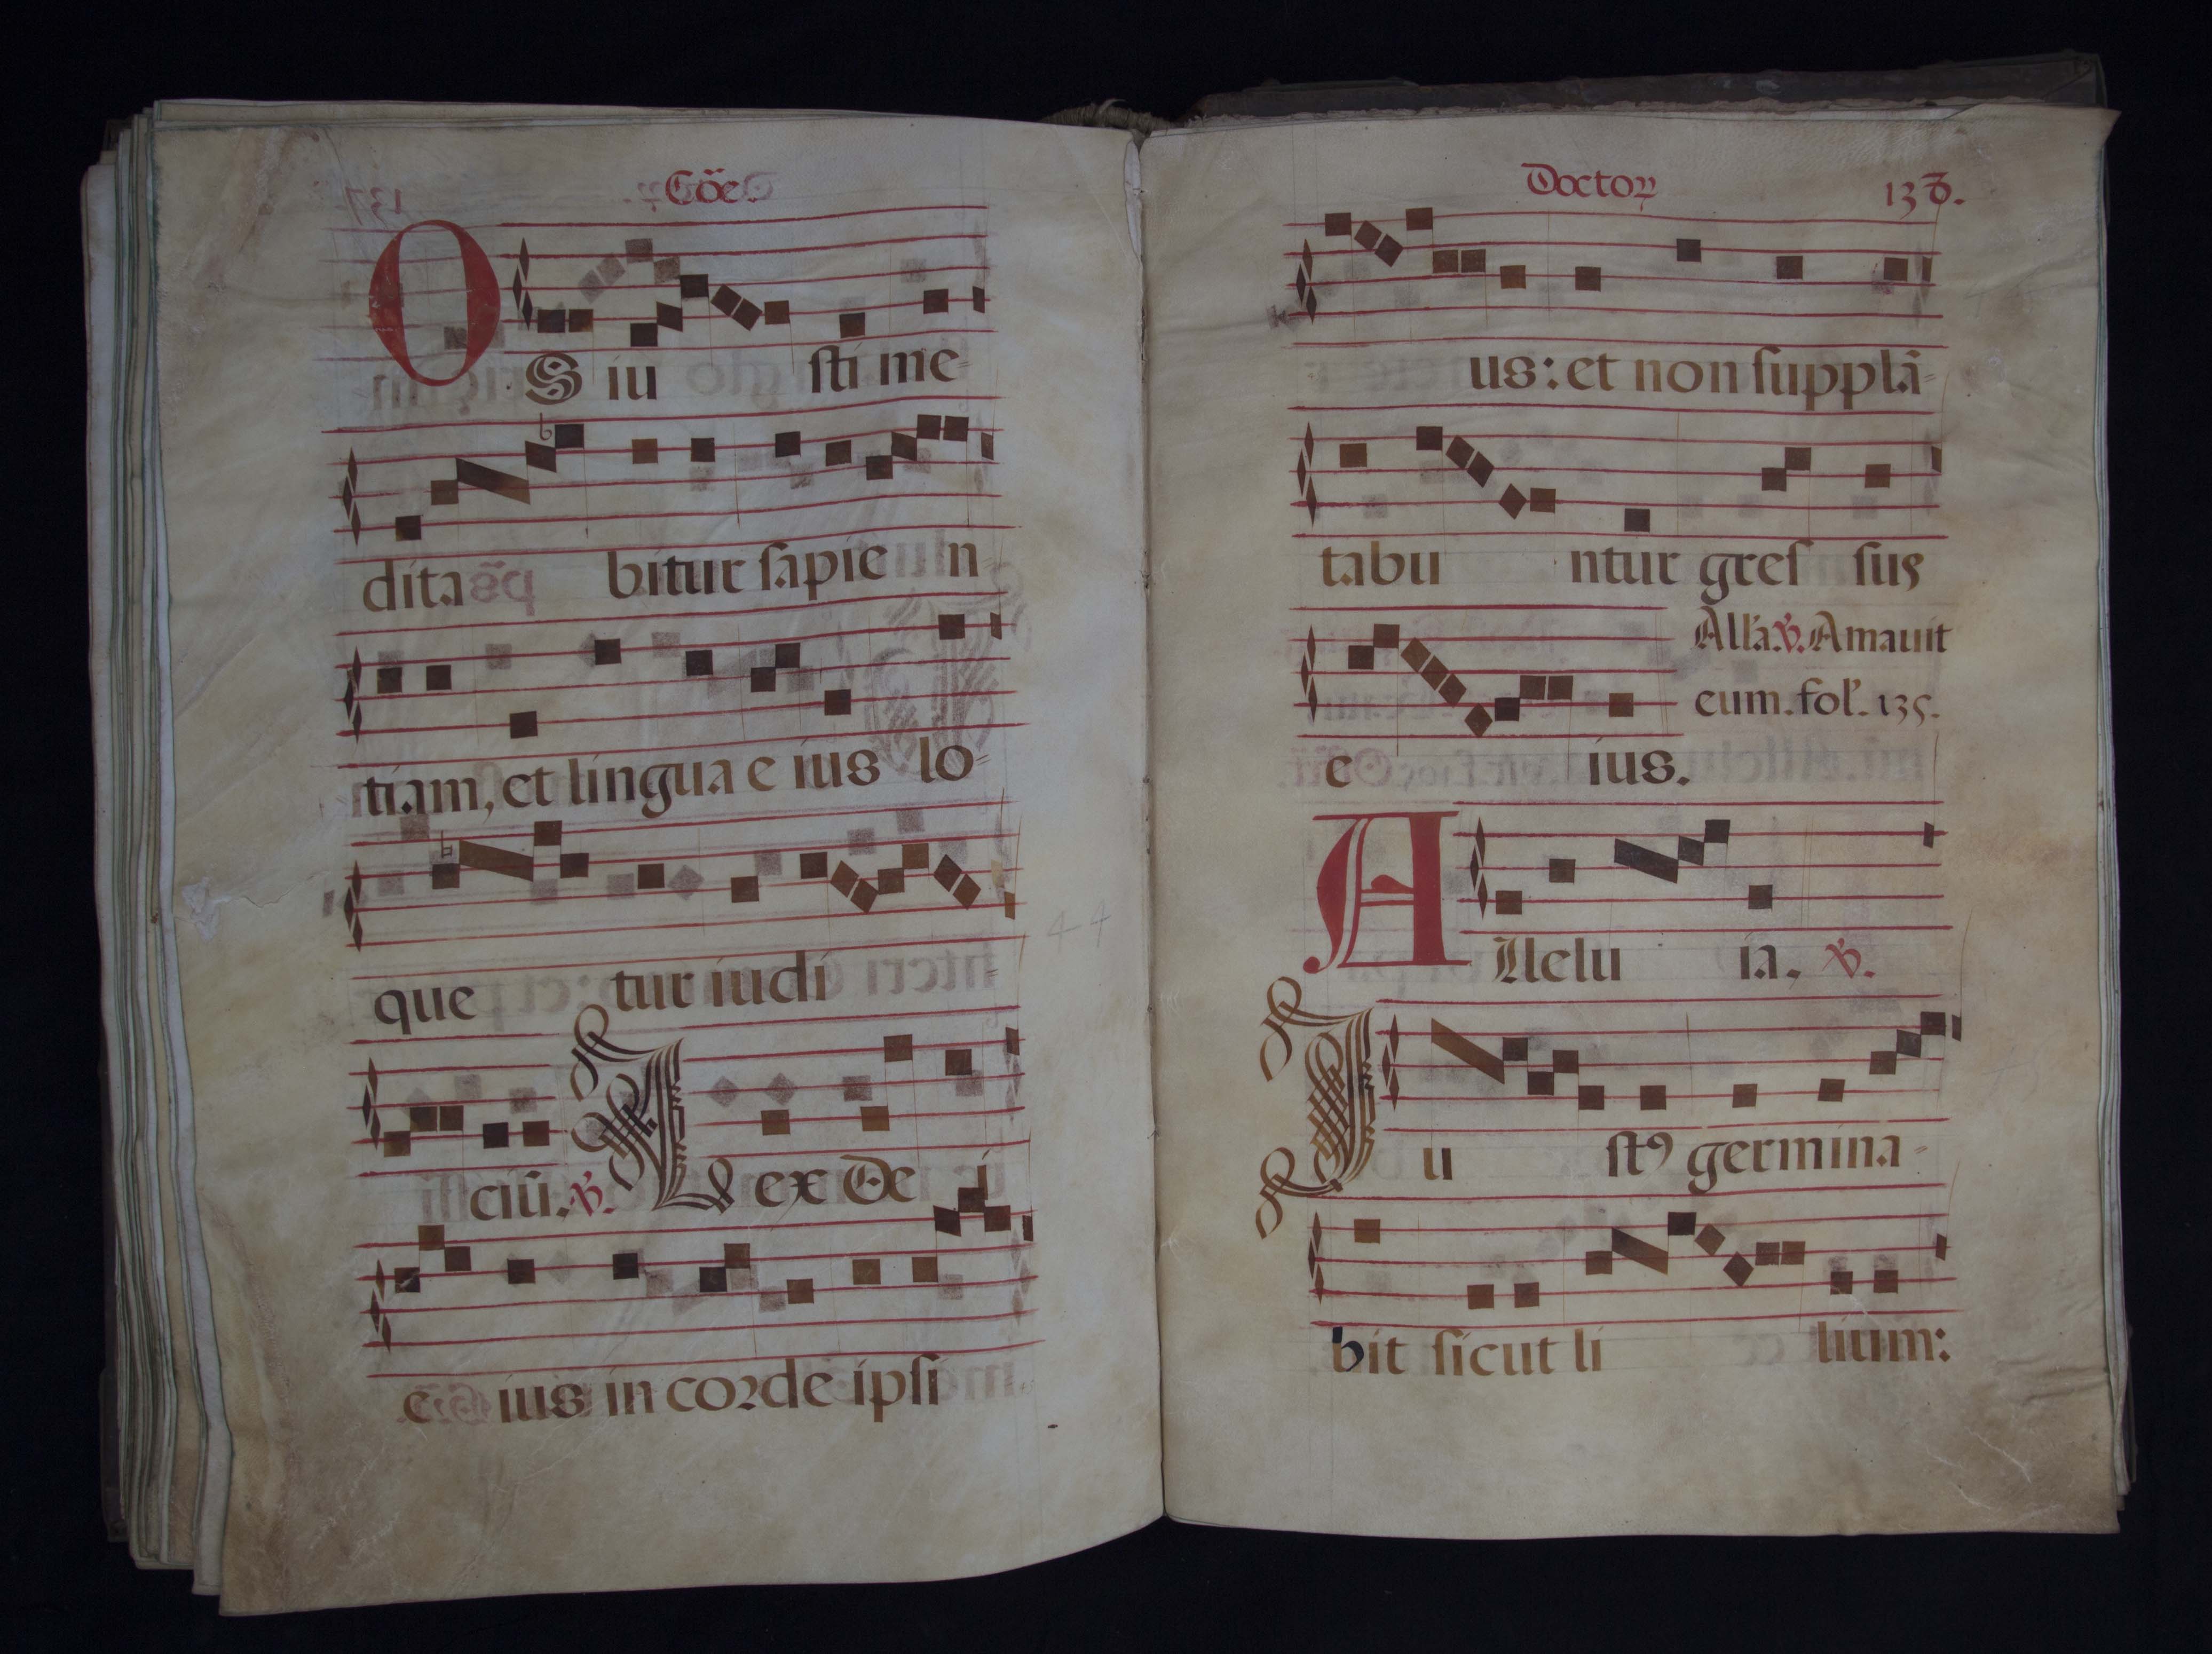 Cõe
OS iu sti me-
dita bitur sapie n-
tiam, et lingua e ius lo-
que tur iudi -
ciũ. ℣. Lex De i
e ius in corde ipsi
44
Doctoꝝ 138.
us: et non supplã-
tabu ntur gres sus
e ius.
All'a. ℣. Amauit
eum. fol'. 135.
Allelu ia, ℣.
Iu stꝰ germina-
bit sicut li lium: